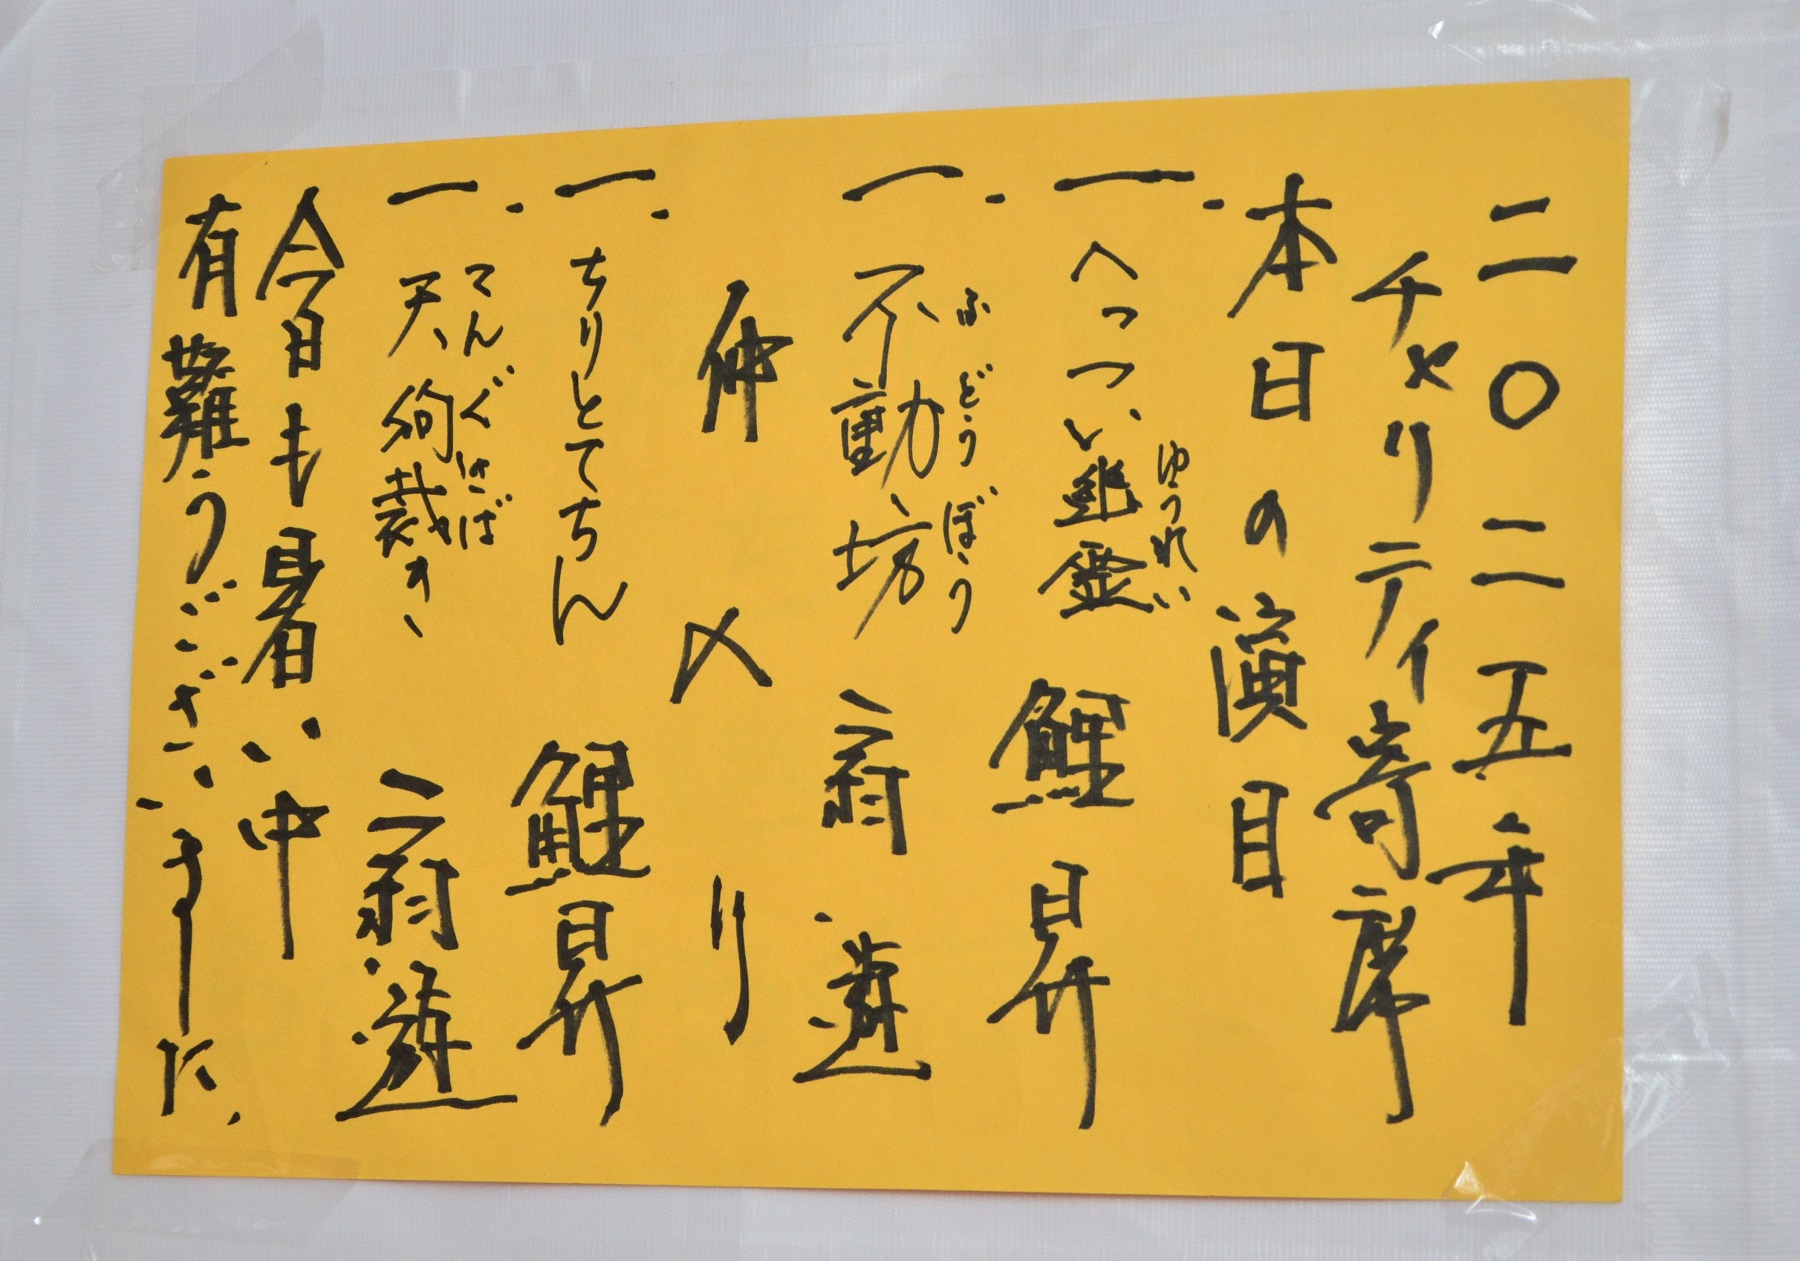 二〇二五年
チャリティ寄席
本日の演目
一.へっつい幽霊 鯉昇
ゆうれい
一.不動坊 扇遊
ふどうぼう
仲入り
一.ちりとてちん 鯉昇
一.天狗裁き 扇遊
てんぐさば
今日も暑い中
有難うございました.